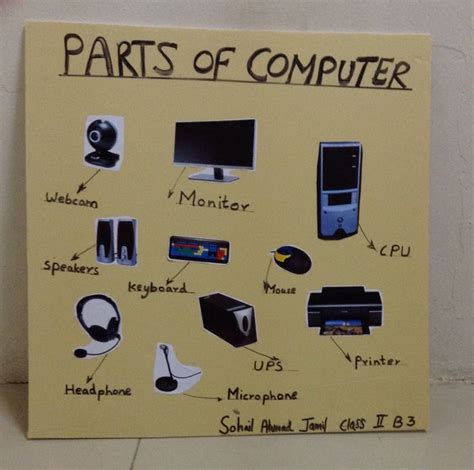 PARTS OF COMPUTER
Webcam
Monitor
CPU
Speakers
Keyboard
Mouse
UPS
Printer
Headphone
Microphone
Sohail Ahmad Jamil Class II B3